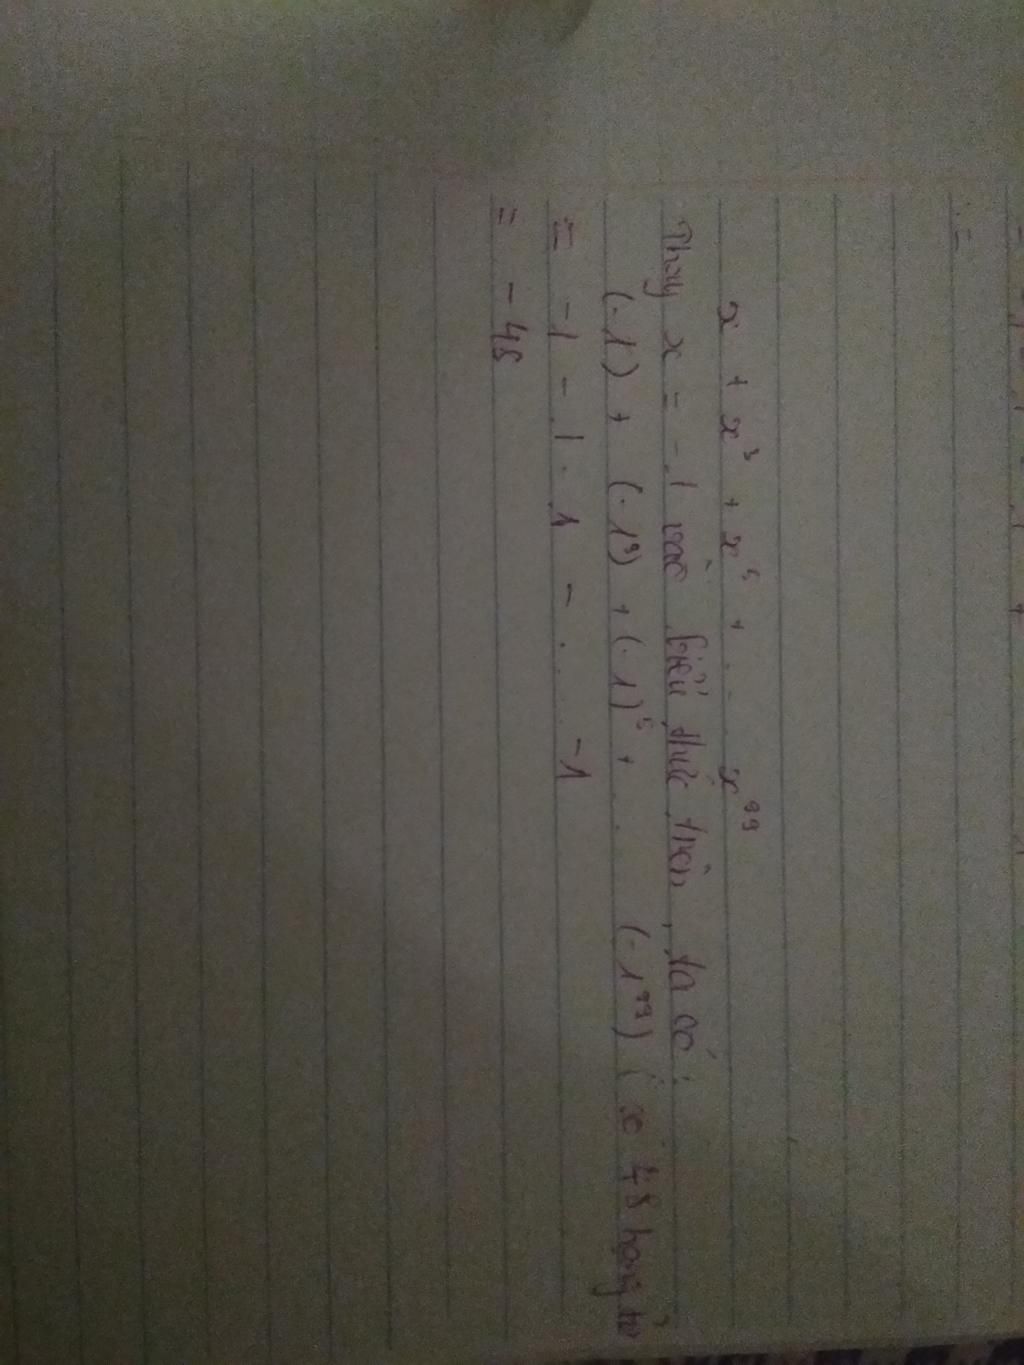 x + x³ + x⁵ + ... x⁹⁹
Thay x = -1 vào biểu thức trên, ta có:
(-1) + (-1³) + (-1)⁵ + .. (-1⁹⁹) ( có 48 hạng tử
= -1 - 1 - 1 - .... -1
= -48